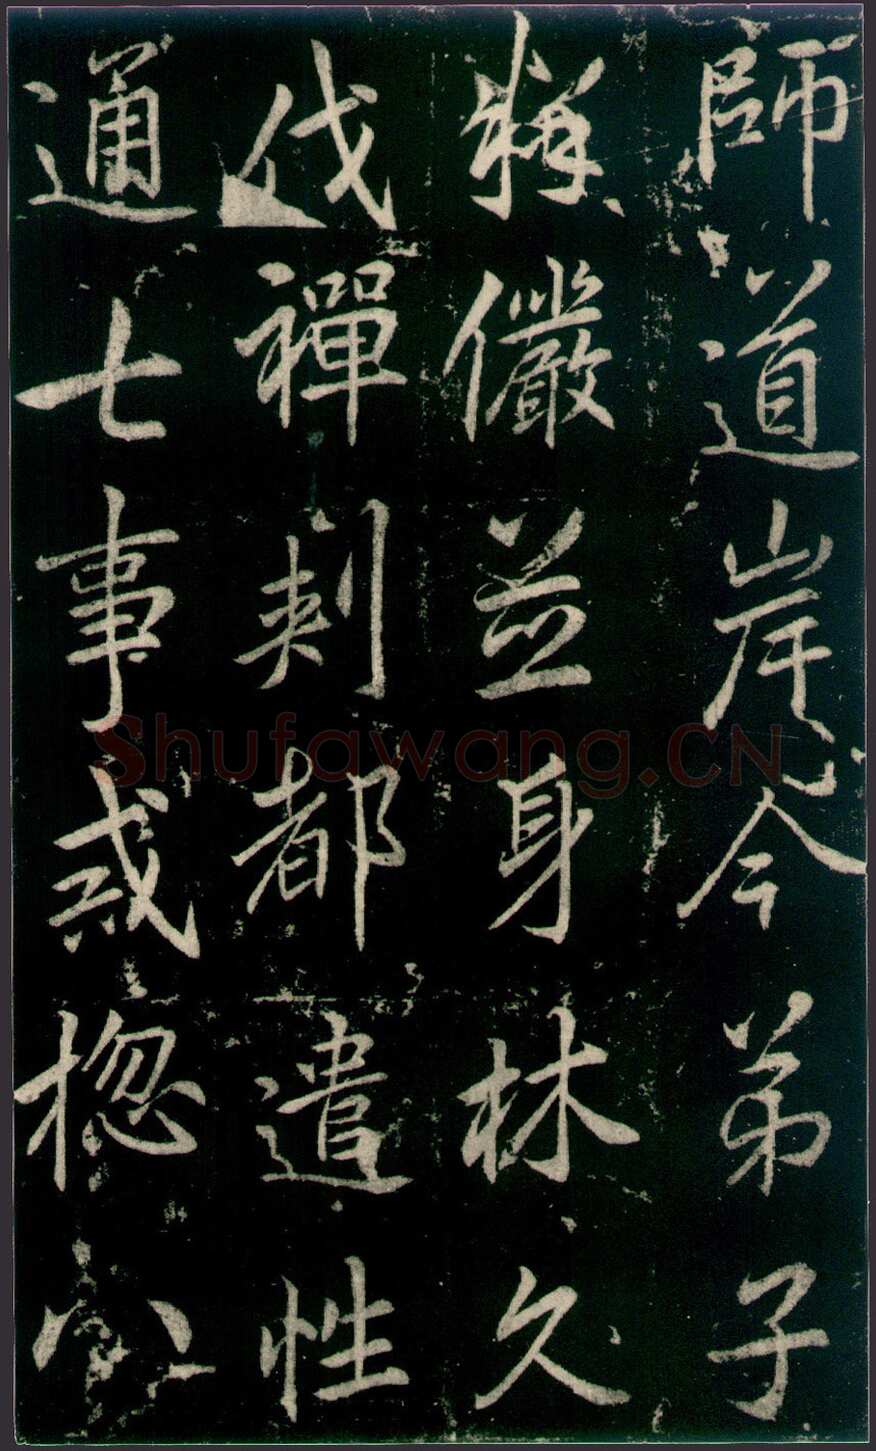 師道岸今弟子
釋儼並身林久
伐禪刾都遣性
通七事戒揔八
Shufawang.CN